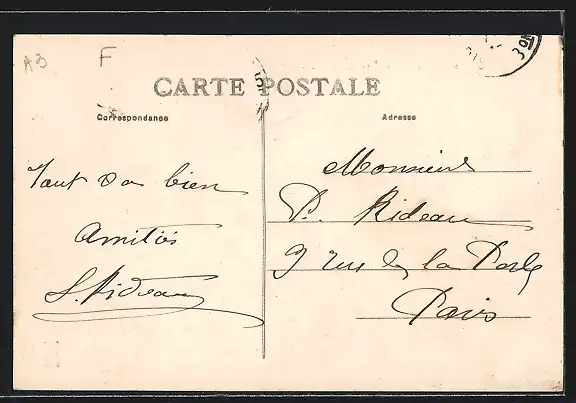 A3
F
CARTE POSTALE
Correspondance
Adresse
Tout va bien
Amitiés
S. Rideau
Monsieur
P. Rideau
9 rue de la Perle
Paris